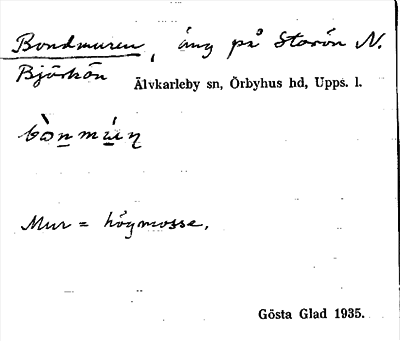 Bondmuren, äng på Storön N.
Björkön
Älvkarleby sn, Örbyhus hd, Upps. l.
Mur = högmosse.
Gösta Glad 1935.